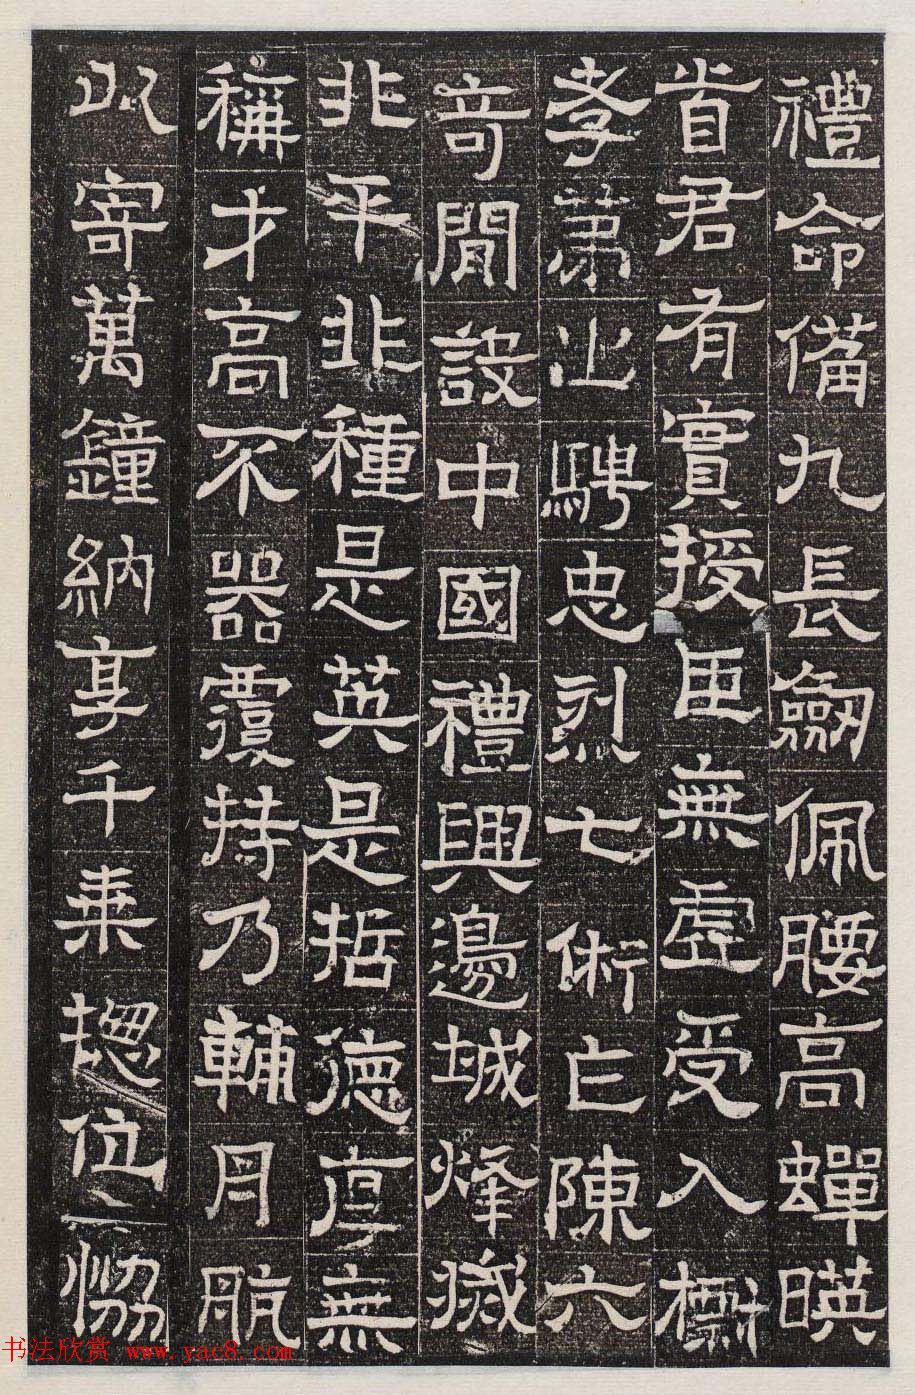 禮命備九長劒佩腰高蟬暎
首君有實授匪無虛受入
孝第出騁忠烈七術亡陳六
奇閒設中國禮興邊城烽滅
非平非種是英是哲德厚無
稱才高不器覆持乃輔舟航
以寄萬鐘納享千乘摠位恊
书法欣赏 www.yac8.com